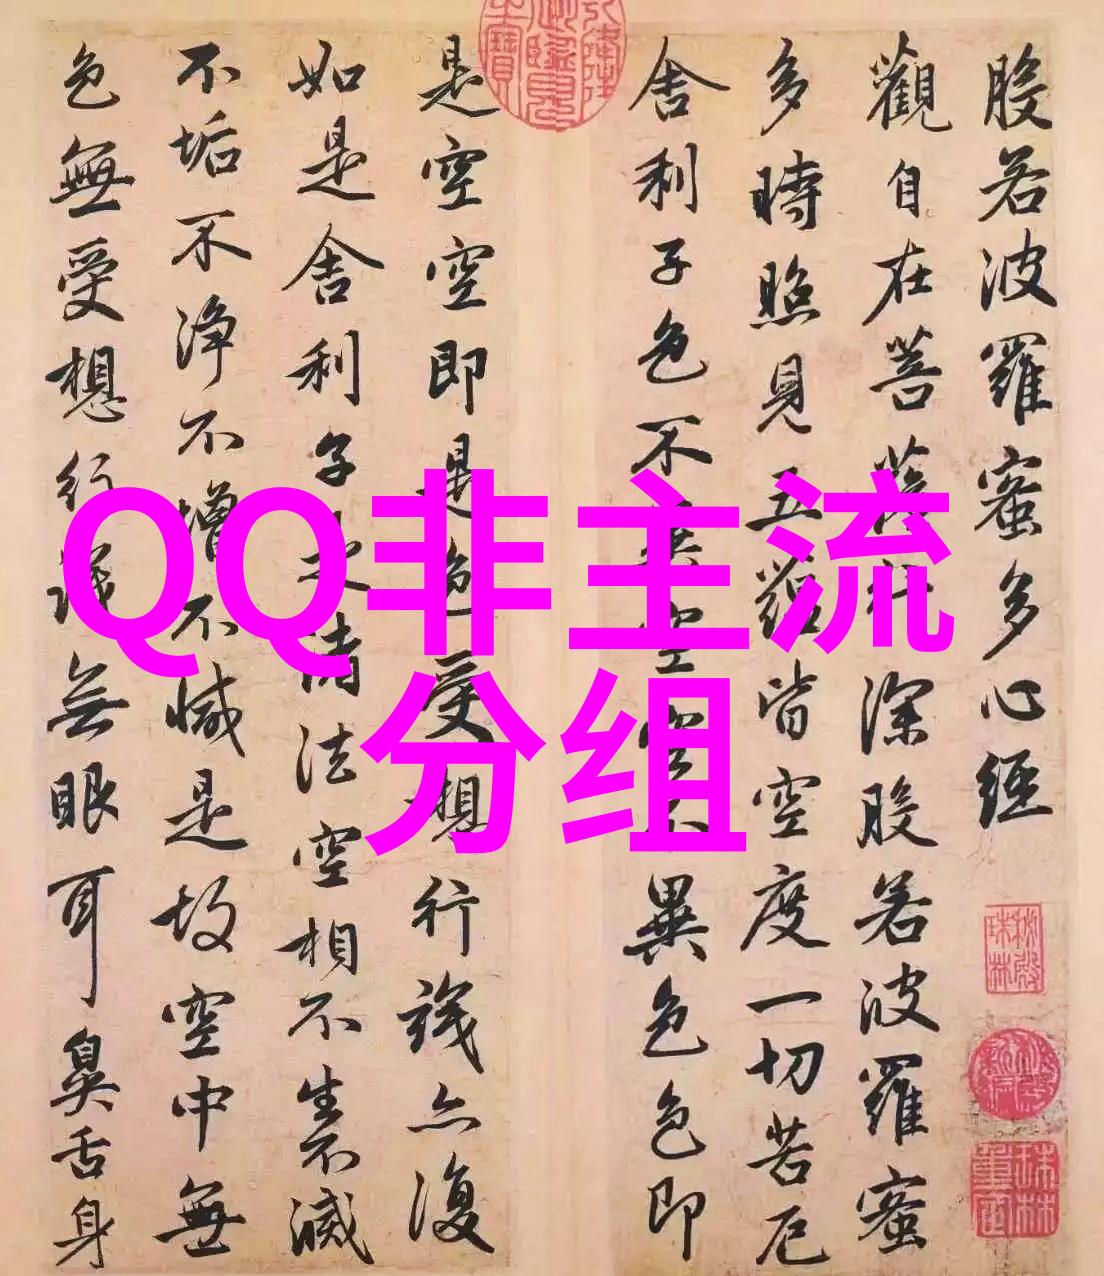 般若波羅蜜多心經
觀自在菩薩行深般若波羅蜜
多時照見五蘊皆空度一切苦厄
舍利子色不異空空不異色色即
是空空即是色受想行識亦復
如是舍利子是諸法空相不生不滅
不垢不淨不增不減是故空中無
色無受想行識無眼耳鼻舌身
QQ非主流
分组